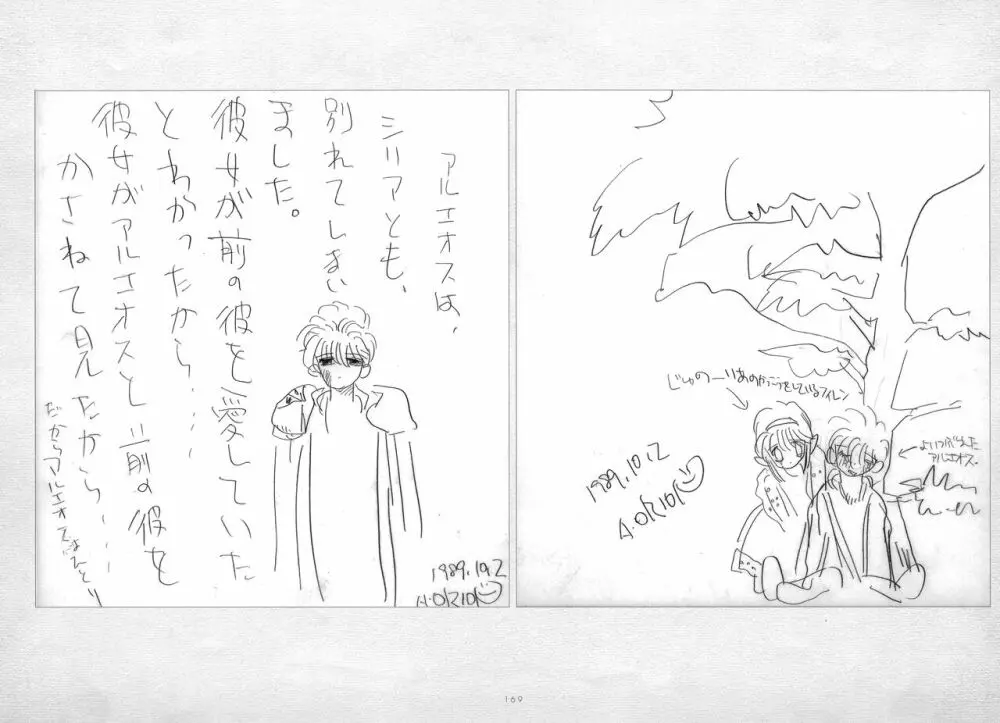 アルエオスは、
シリアとも、
別れてしまい
ました。
彼女が前の彼を愛していた
とわかったから‥‥‥
彼女がアルエオスと前の彼を
かさねて見たから‥‥‥
だからアルエオスはひとり
1989.10.2
じゅのーりあのかっこうをしているアイレン
アルエオス。
1989.10.2
169